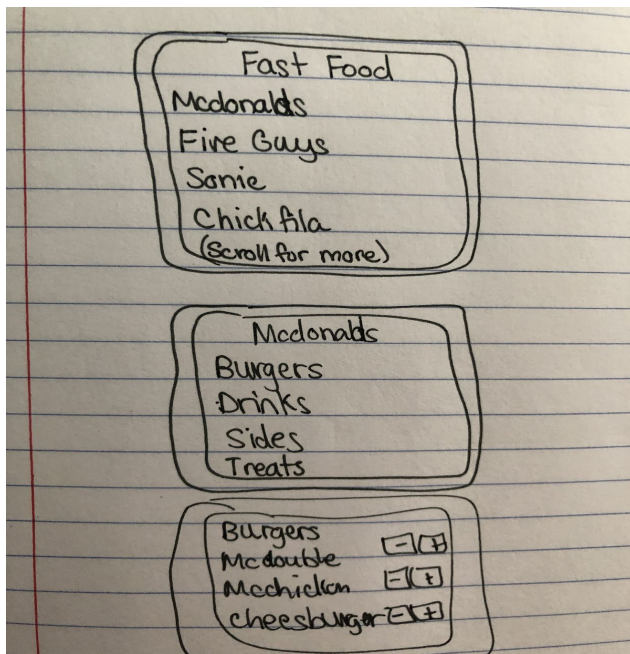 Fast Food
Mcdonalds
Five Guys
Sonic
Chick fila
(Scroll for more)
Mcdonalds
Burgers
Drinks
Sides
Treats
Burgers
Mcdouble - +
Mcchicken - +
cheesburger - +